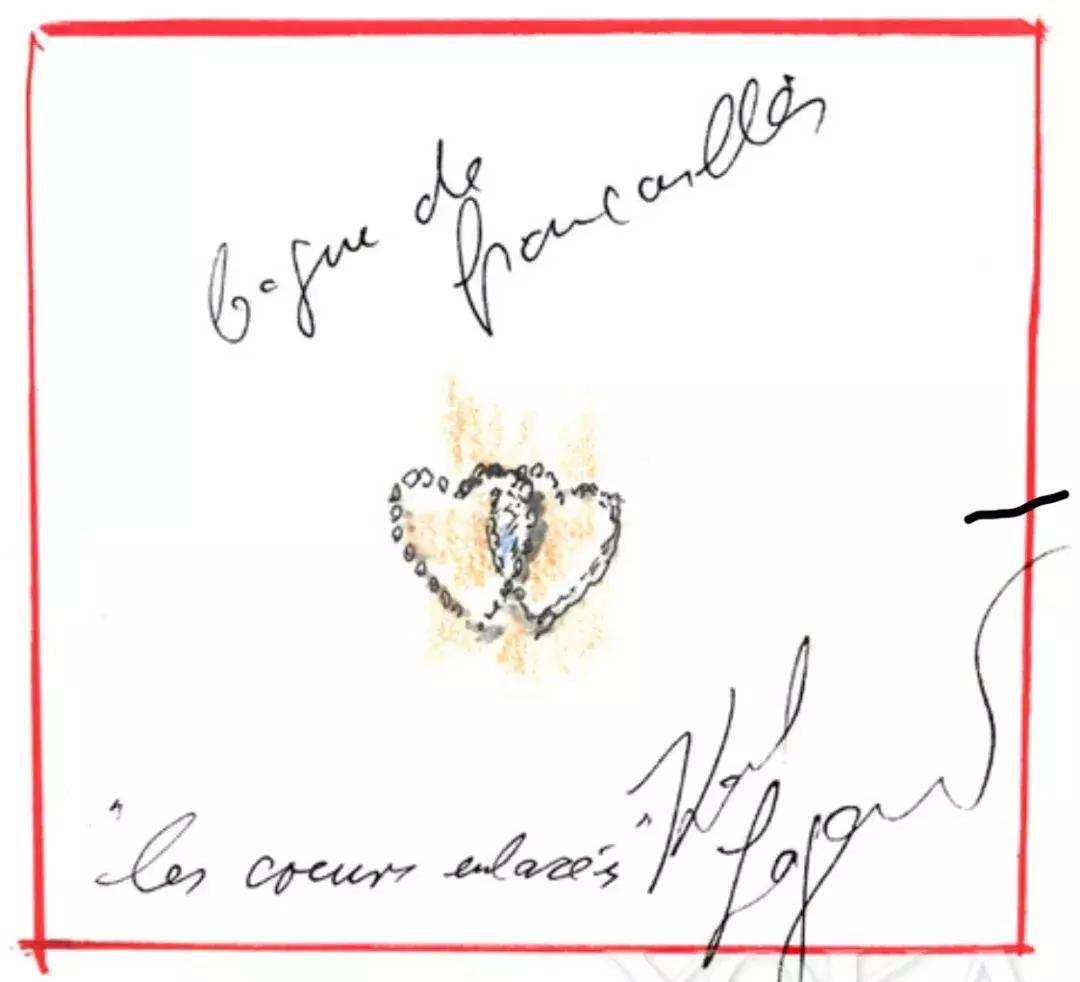 bague de
fiançailles
"les coeurs enlacés"
Karl
Lagerfeld
YOKA